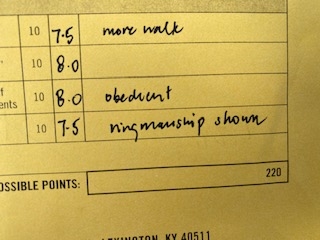 10 7.5 more walk
10 8.0
f
ents 10 8.0 obedient
10 7.5 ringmanship shown
OSSIBLE POINTS: 220
EXINGTON, KY 40511